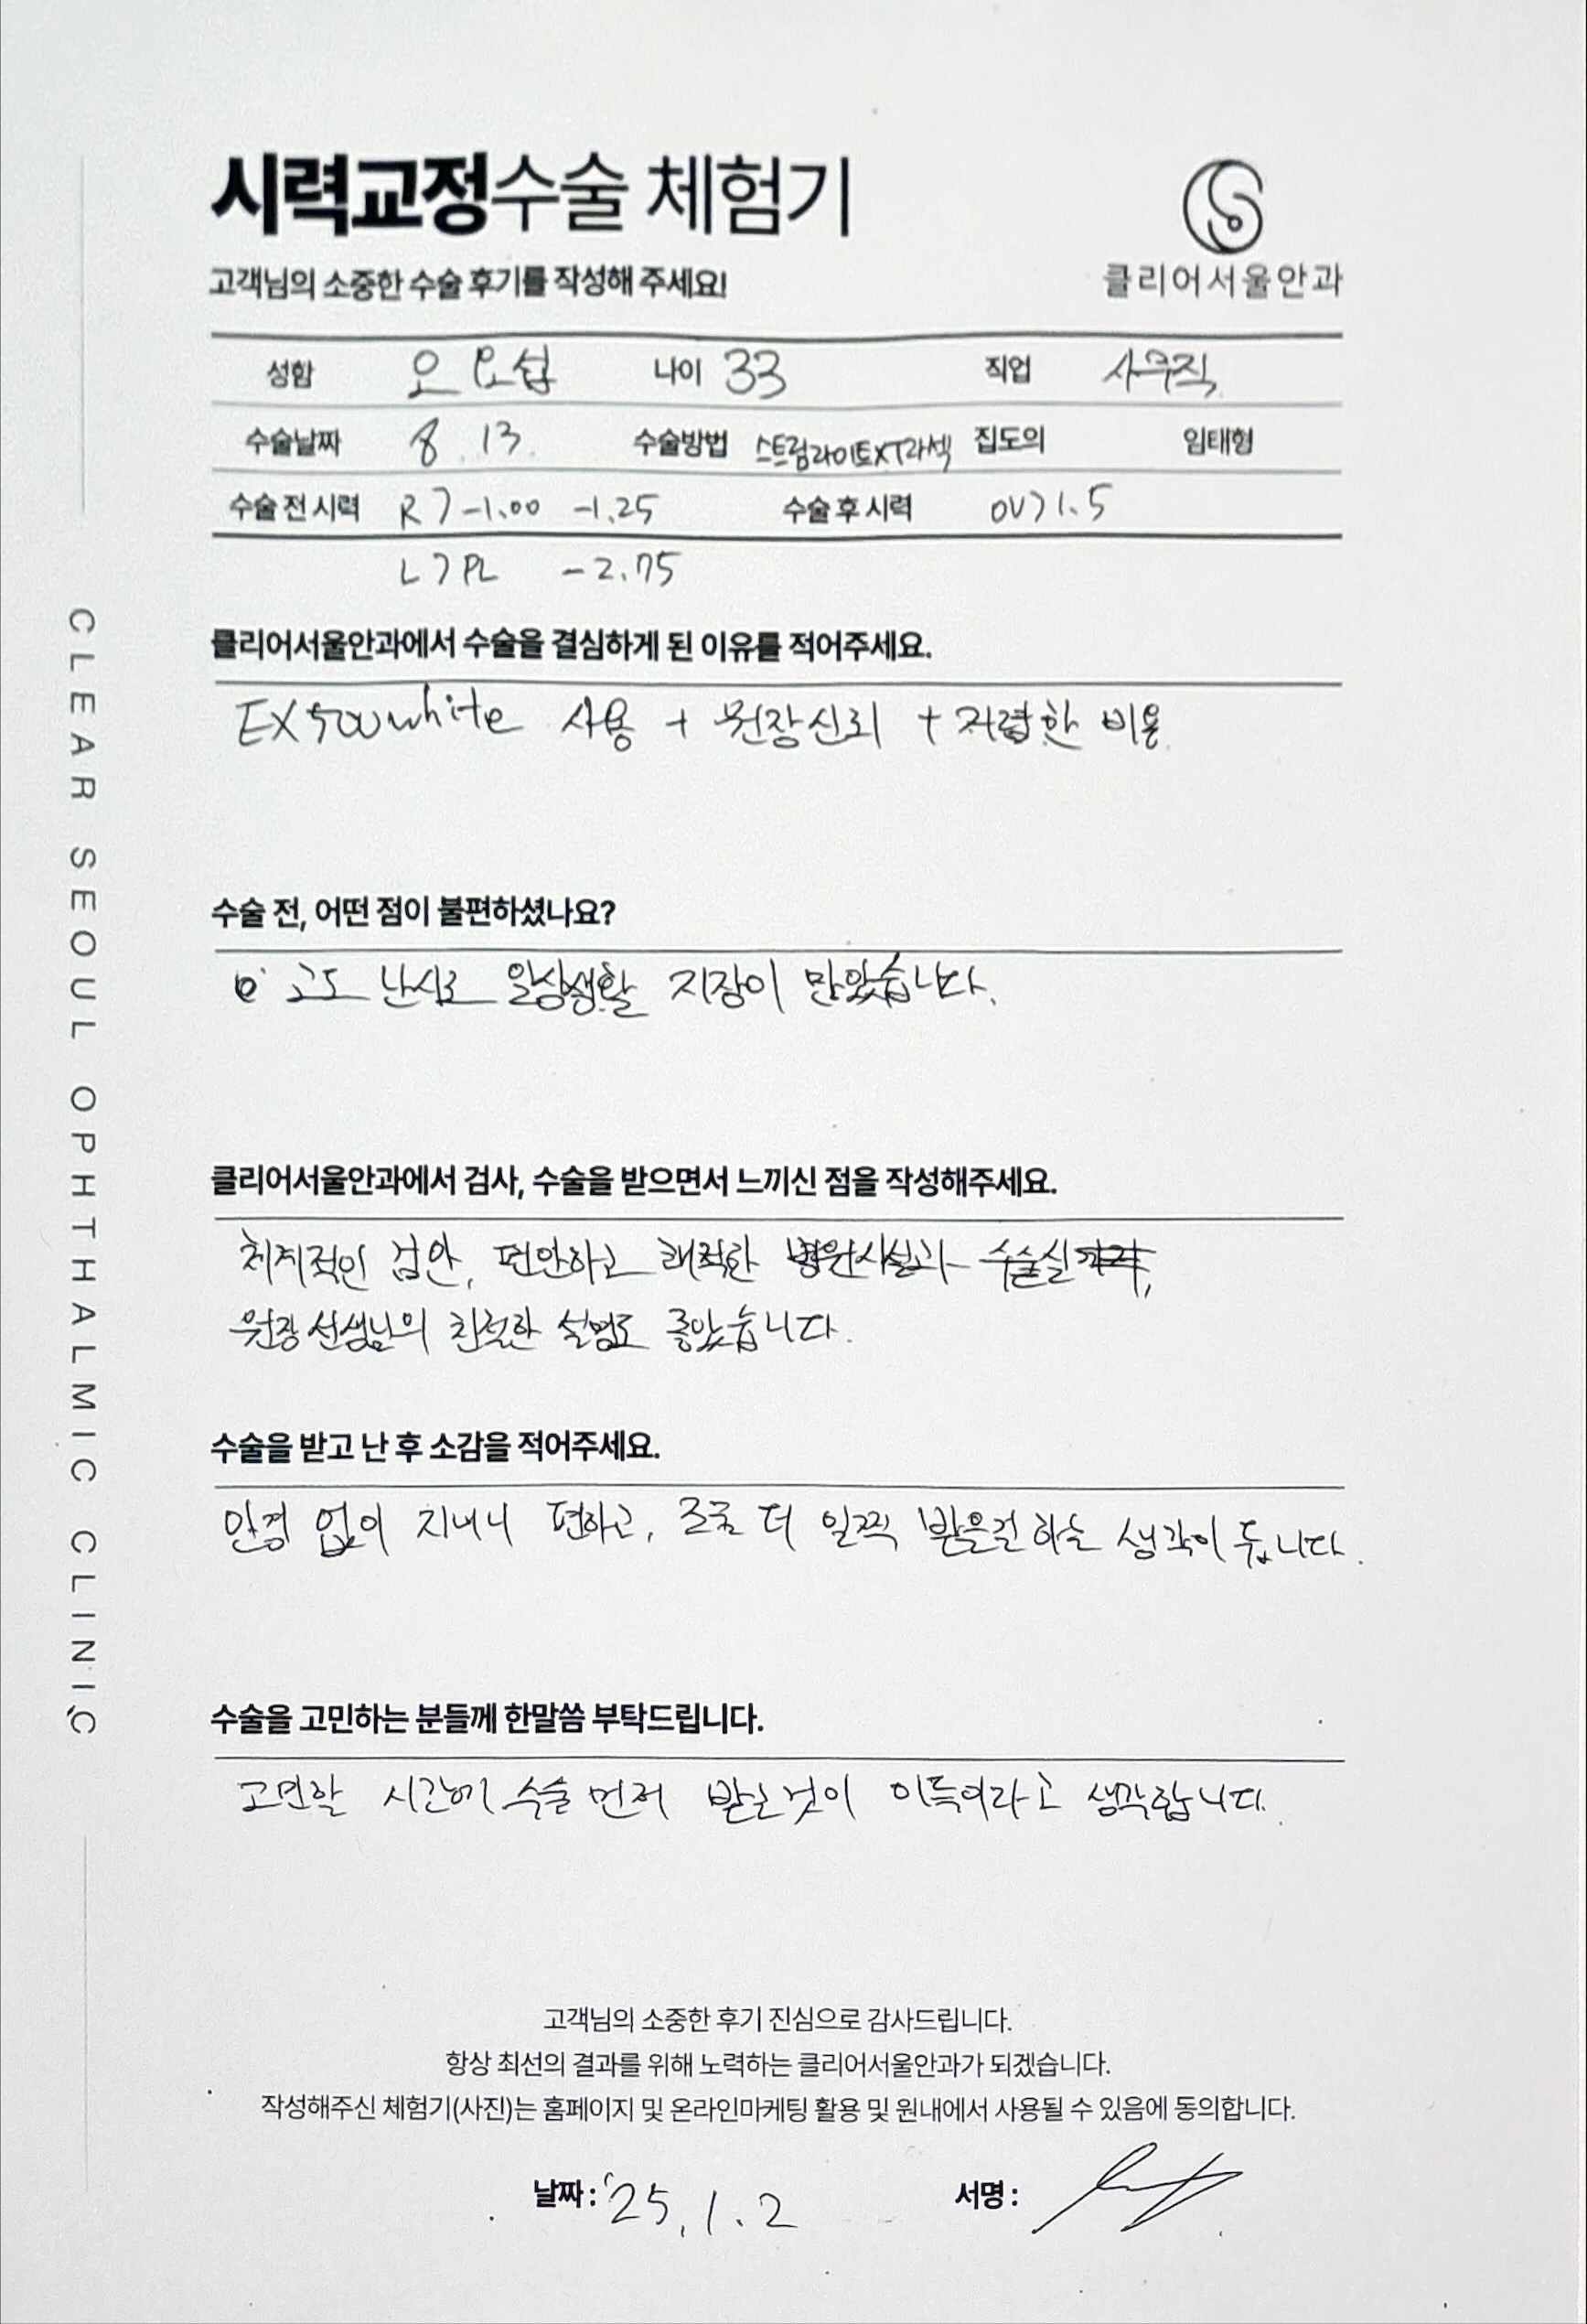 시력교정수술 체험기
클리어서울안과
고객님의 소중한 수술 후기를 작성해 주세요!
성함 오 요섭 나이 33 직업 사무직
수술날짜 8. 13. 수술방법 스트림라이트XT라섹 집도의 임태형
수술 전 시력 R> -1.00 -1.25 수술 후 시력 OU> 1.5
L> PL -2.75
클리어서울안과에서 수술을 결심하게 된 이유를 적어주세요.
EX500white 사용 + 원장신뢰 + 저렴한 비용
수술 전, 어떤 점이 불편하셨나요?
고도 난시로 일상생활 지장이 많았습니다.
클리어서울안과에서 검사, 수술을 받으면서 느끼신 점을 작성해주세요.
체계적인 검안, 편안하고 쾌적한 병원시설과 수술실,
원장선생님의 친절한 설명도 좋았습니다.
수술을 받고 난 후 소감을 적어주세요.
안경 없이 지내니 편하고, 조금 더 일찍 받을걸 하는 생각이 듭니다.
수술을 고민하는 분들께 한말씀 부탁드립니다.
고민할 시간에 수술 먼저 받는것이 이득이라고 생각합니다.
고객님의 소중한 후기 진심으로 감사드립니다.
항상 최선의 결과를 위해 노력하는 클리어서울안과가 되겠습니다.
작성해주신 체험기(사진)는 홈페이지 및 온라인마케팅 활용 및 원내에서 사용될 수 있음에 동의합니다.
날짜 : '25. 1. 2 서명 :
CLEAR SEOUL OPHTHALMIC CLINIC